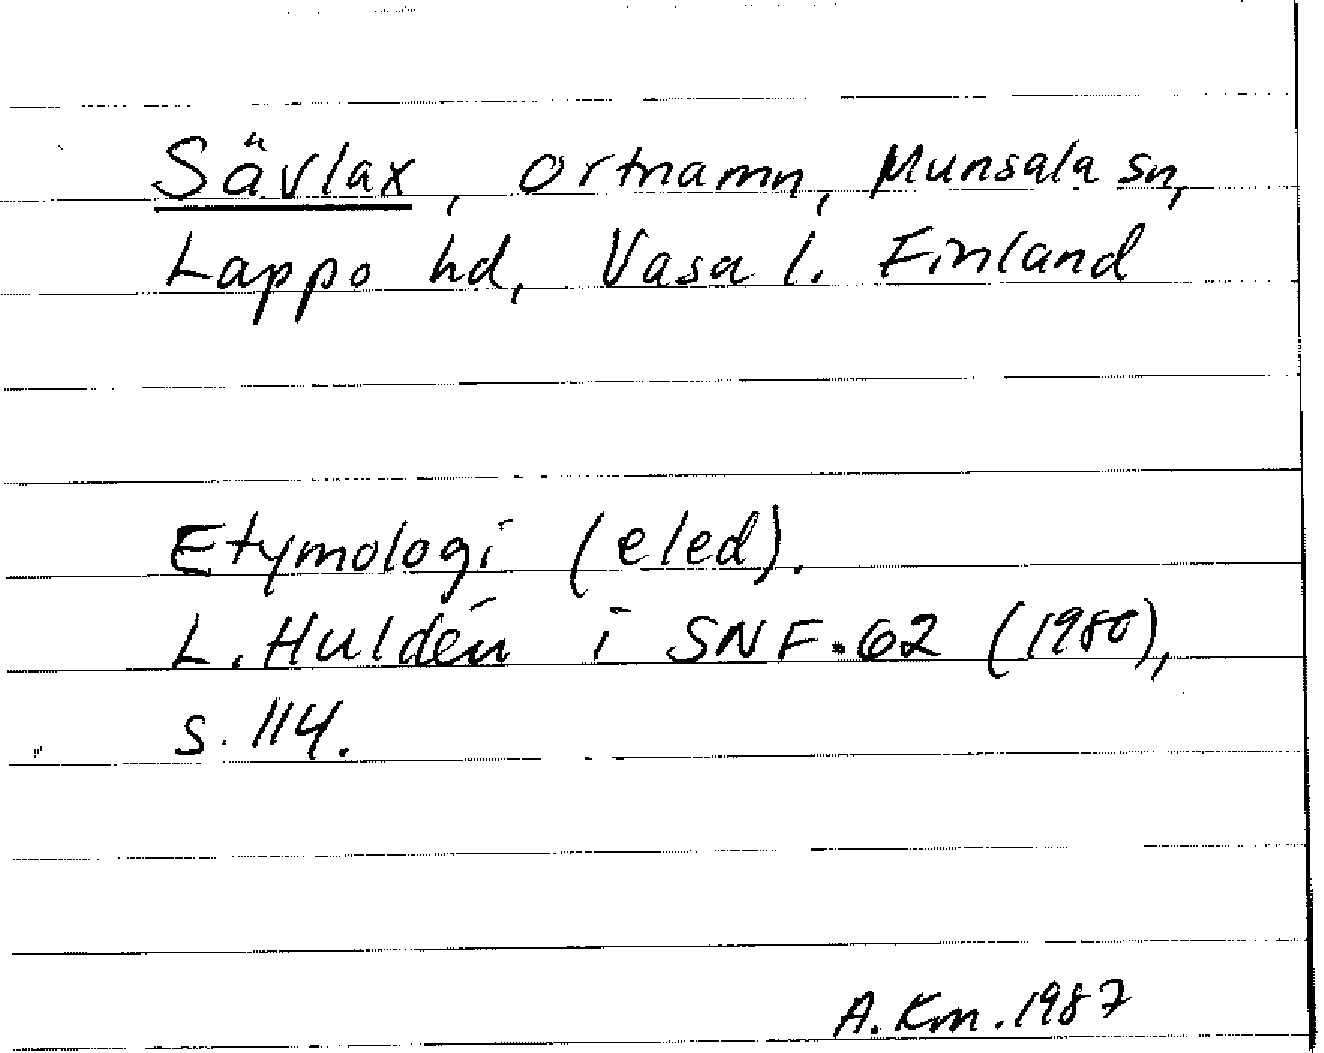 Sävlax, ortnamn, Munsala sn,
Lappo hd, Vasa l. Finland
Etymologi (eled).
L. Huldén i SNF. 62 (1980),
s. 114.
A. Km. 1987